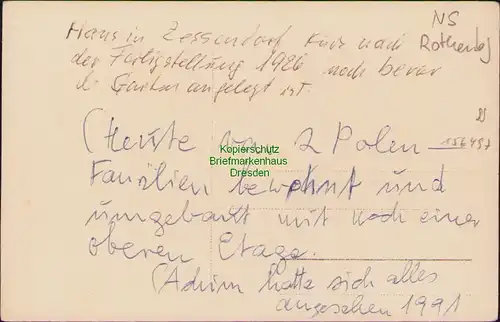 NS
Haus in Zessendorf kurz nach Rothenbg
der Fertigstellung 1926 noch bevor
d. Garten angelegt ist.
(Heute von 2 Polen
156457
Familien bewohnt und
umgebaut mit noch einer
oberen Etage.
(Achim hatte sich alles
angesehen 1991
Kopierschutz
Briefmarkenhaus
Dresden